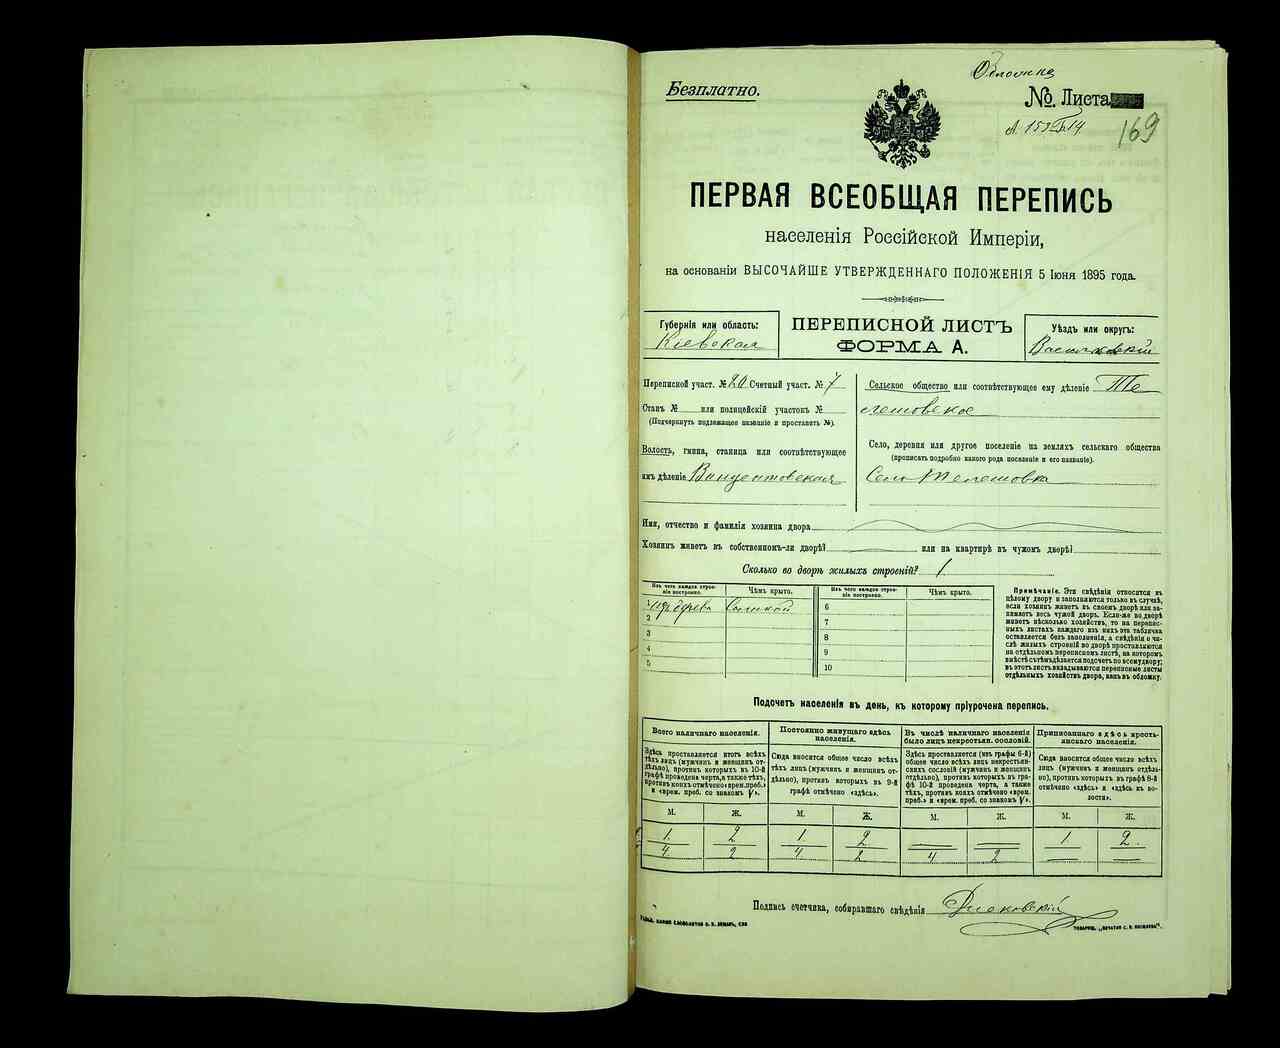 Обложка
Безплатно.
№ Листа
А. 153 Б 14
169
ПЕРВАЯ ВСЕОБЩАЯ ПЕРЕПИСЬ
населенія Россійской Имперіи,
на основаніи ВЫСОЧАЙШЕ УТВЕРЖДЕННАГО ПОЛОЖЕНІЯ 5 Іюня 1895 года.
Губернія или область:
Кіевская
ПЕРЕПИСНОЙ ЛИСТЪ
ФОРМА А.
Уѣздъ или округъ:
Васильковскій
Переписной участ. № 20 Счетный участ. № 7
Станъ № или полицейскій участокъ №
(Подчеркнуть подлежащее названіе и проставить №).
Волость, гмина, станица или соотвѣтствующее
имъ дѣленіе Винцентовская
Сельское общество или соотвѣтствующее ему дѣленіе Те
лешовское
Село, деревня или другое поселеніе на земляхъ сельскаго общества
(прописать подробно какого рода поселеніе и его названіе).
Село Телешовка
Имя, отчество и фамилія хозяина двора
Хозяинъ живетъ въ собственномъ-ли дворѣ? или на квартирѣ въ чужомъ дворѣ?
Сколько во дворѣ жилыхъ строеній? 1
Изъ чего каждое строеніе построено.
Чѣмъ крыто.
Изъ чего каждое строеніе построено.
Чѣмъ крыто.
1 изъ дерева Соломой 6
2 7
3 8
4 9
5 10
Примѣчаніе. Эти свѣдѣнія относятся къ
цѣлому двору и заполняются только въ случаѣ,
если хозяинъ живетъ въ своемъ дворѣ или занимаетъ
весь чужой дворъ. Если-же во дворѣ
живетъ нѣсколько хозяйствъ, то на переписныхъ
листахъ каждаго изъ нихъ эта табличка
оставляется безъ заполненія, а свѣдѣнія о числѣ
жилыхъ строеній во дворѣ проставляются
на отдѣльномъ переписномъ листѣ, на которомъ
вмѣстѣ съ тѣмъ дѣлается подсчетъ по всему двору;
въ этотъ листъ вкладываются переписные листы
отдѣльныхъ хозяйствъ двора, какъ въ обложку.
Подсчетъ населенія въ день, къ которому пріурочена перепись.
Всего наличнаго населенія.
Постоянно живущаго здѣсь населенія.
Въ числѣ наличнаго населенія было лицъ некрестьян. сословій.
Приписаннаго здѣсь крестьянскаго населенія.
Здѣсь проставляется итогъ всѣхъ
тѣхъ лицъ (мужчинъ и женщинъ отдѣльно),
противъ которыхъ въ 10-й
графѣ проведена черта, а также тѣхъ,
противъ коихъ отмѣчено «врем. преб.»
и «врем. преб. со знакомъ V».
Сюда вносится общее число всѣхъ
тѣхъ лицъ (мужчинъ и женщинъ отдѣльно),
противъ которыхъ въ 9-й
графѣ отмѣчено «здѣсь».
Здѣсь проставляется (изъ графы 6-й)
общее число всѣхъ лицъ некрестьянскихъ
сословій (мужчинъ и женщинъ
отдѣльно), противъ которыхъ въ графѣ
10-й проведена черта, а также
тѣхъ, противъ коихъ отмѣчено «врем.
преб.» и «врем. преб. со знакомъ V».
Сюда вносится общее число всѣхъ
лицъ (мужчинъ и женщинъ отдѣльно),
противъ которыхъ въ графѣ 8-й
отмѣчено «здѣсь» и «здѣсь къ волости».
М. Ж. М. Ж. М. Ж. М. Ж.
1. 2 1. 2 — — 1 2.
4. 2 4. 2 4 2 — —
Подпись счетчика, собиравшаго свѣдѣнія
ТОВАРИЩ. „ПЕЧАТНЯ С. П. ЯКОВЛЕВА“.